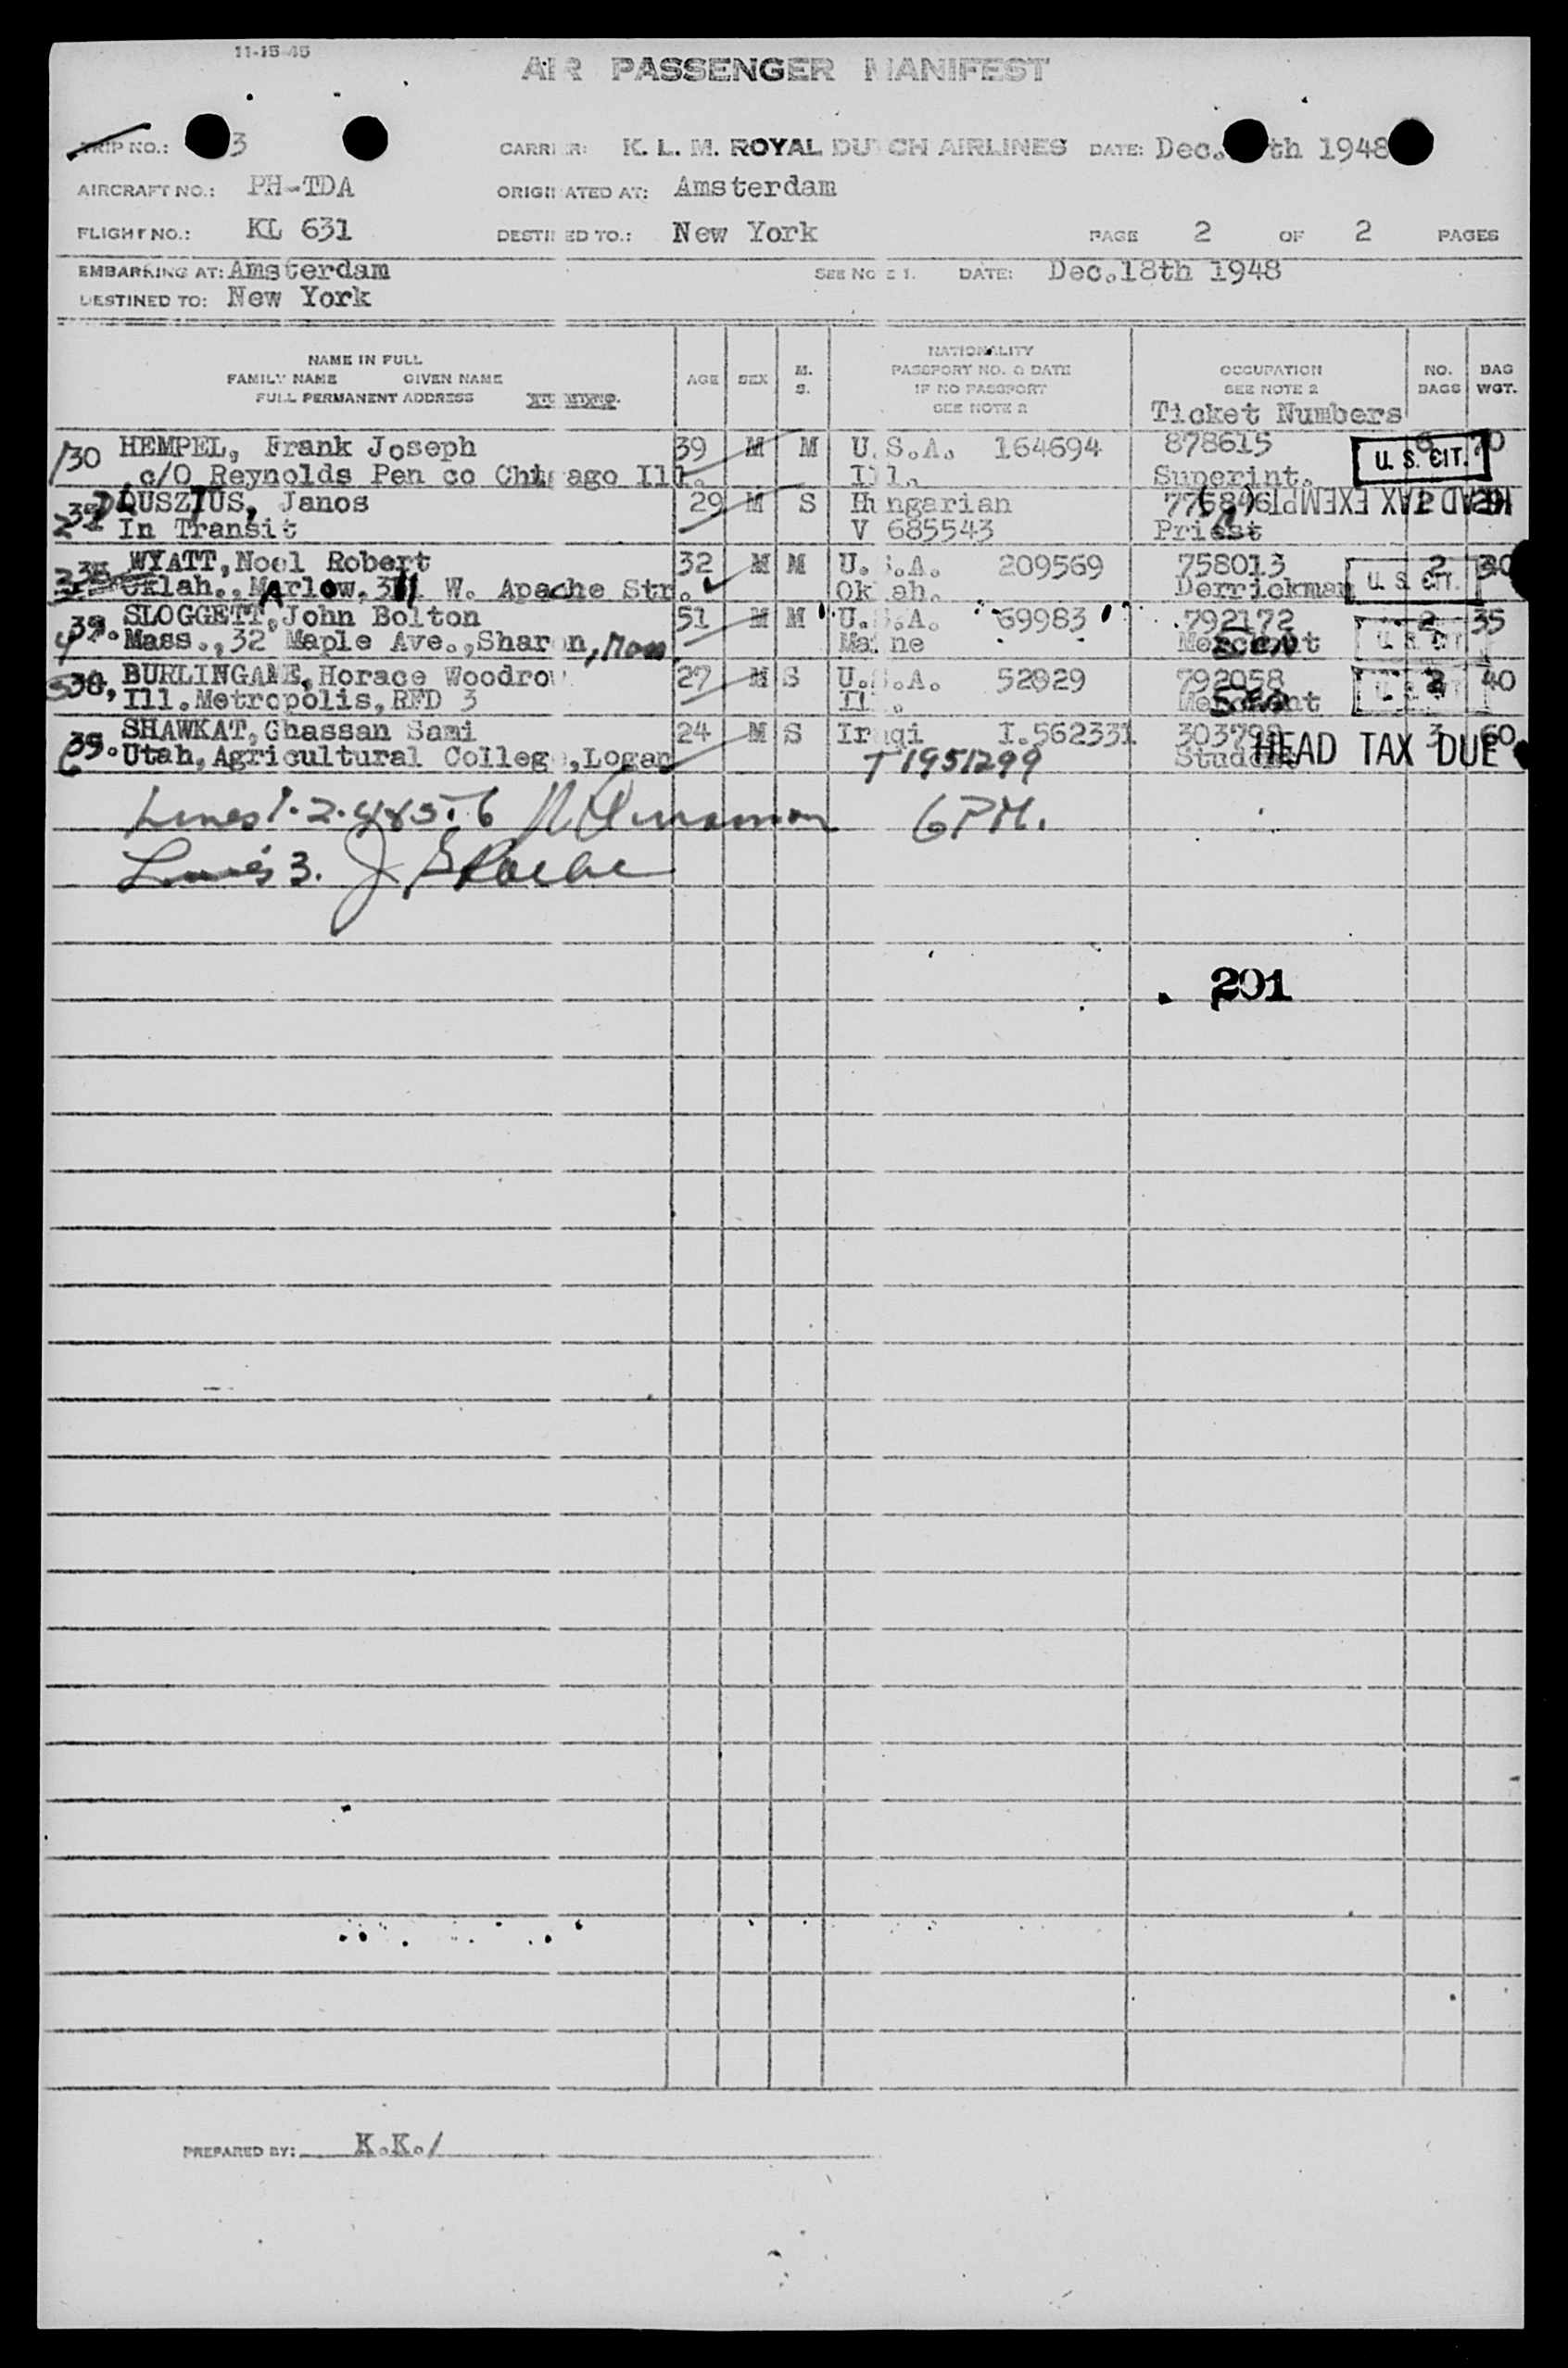 11-15-45
AIR PASSENGER MANIFEST
TRIP NO.: 3 CARRIER: K. L. M. ROYAL DUTCH AIRLINES DATE: Dec. th 1948
AIRCRAFT NO.: PH-TDA ORIGINATED AT: Amsterdam
FLIGHT NO.: KL 631 DESTINED TO.: New York PAGE 2 OF 2 PAGES
EMBARKING AT: Amsterdam SEE NOTE 1. DATE: Dec.18th 1948
DESTINED TO: New York
NAME IN FULL
FAMILY NAME GIVEN NAME
FULL PERMANENT ADDRESS
AGE SEX M. S.
NATIONALITY
PASSPORT NO. & DATE
IF NO PASSPORT
SEE NOTE 2
OCCUPATION
SEE NOTE 2
Ticket Numbers
NO. BAGS BAG WGT.
30 HEMPEL, Frank Joseph 39 M M U.S.A. 164694 878615
c/O Reynolds Pen co Chicago Ill. Ill. Superint. U. S. CIT.
USZTUS, Janos 29 M S Hungarian HEAD TAX EXEMPT
2 In Transit V 685543 Priest
WYATT, Noel Robert 32 M M U.S.A. 209569 758013 2 30
3 Oklah., MArlow, 311 W. Apache Str. Oklah. Derrickman U. S. CIT.
SLOGGETT, John Bolton 51 M M U.S.A. 69983 792172 2 35
4 Mass., 32 Maple Ave., Sharon, Mass Maine U. S. CIT.
BURLINGAME, Horace Woodrow 27 M S U.S.A. 52929 792058 2 40
5 Ill. Metropolis, RFD 3 Ill. U. S. CIT.
SHAWKAT, Ghassan Sami 24 M S Iraqi I.562331 3 60
6 Utah, Agricultural College, Logan T1951299 Student HEAD TAX DUE
Lines 1.2.4&5.6 6 PM.
Lines 3.
201
PREPARED BY: K.K./